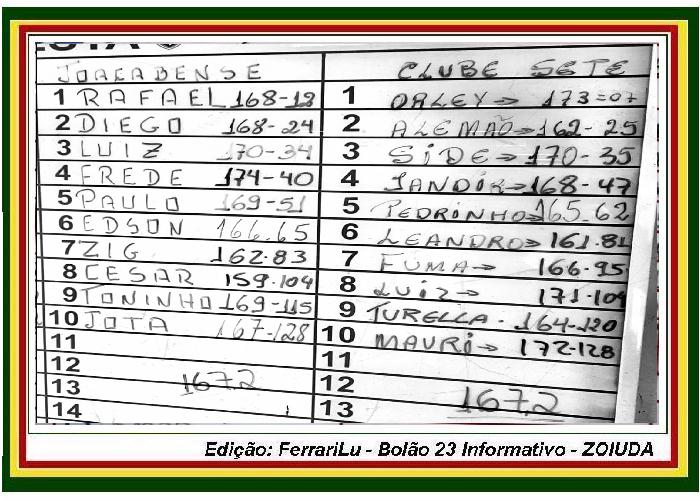 JOACABENSE
1 RAFAEL 168-12
2 DIEGO 168-24
3 LUIZ 170-34
4 FREDE 174-40
5 PAULO 169-51
6 EDSON 166.65
7 ZIG 162-83
8 CESAR 159-104
9 TONINHO 169-115
10 JOTA 167-128
11
12
13 167,2
14
CLUBE SETE
1 ORLEY → 173=07
2 ALEMÃO → 162-25
3 SIDE → 170-35
4 JANDIR → 168-47
5 PEDRINHO → 165.62
6 LEANDRO → 161.81
7 FUMA → 166-95
8 LUIZ → 171-109
9 TURELLA - 164-120
10 MAURI → 172-128
11
12
13 167,2
Edição: FerrariLu - Bolão 23 Informativo - ZOIUDA